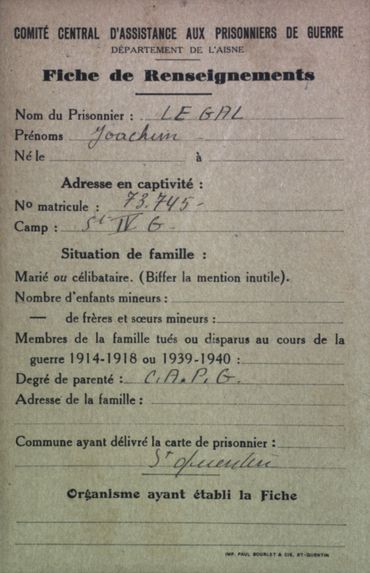 COMITÉ CENTRAL D'ASSISTANCE AUX PRISONNIERS DE GUERRE
DÉPARTEMENT DE L'AISNE
Fiche de Renseignements
Nom du Prisonnier : LE GAL
Prénoms Joachim
Né le à
Adresse en captivité :
No matricule : 73.745-
Camp : St IV G -
Situation de famille :
Marié ou célibataire. (Biffer la mention inutile).
Nombre d'enfants mineurs :
— de frères et sœurs mineurs :
Membres de la famille tués ou disparus au cours de la
guerre 1914-1918 ou 1939-1940 :
Degré de parenté : C.A.P.G.
Adresse de la famille :
Commune ayant délivré la carte de prisonnier :
St Quentin
Organisme ayant établi la Fiche
IMP. PAUL BOURLET & CIE. ST-QUENTIN